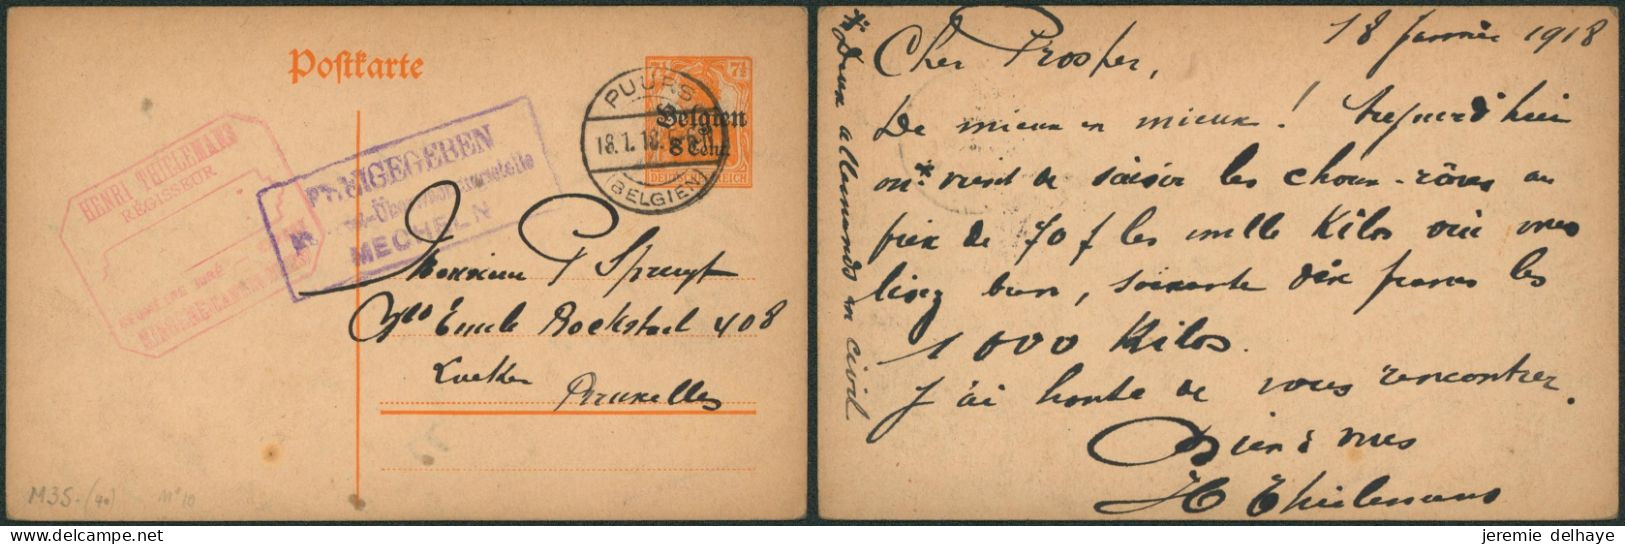 Postkarte
7½ 7½
Belgien
8 Cent.
DEUTSCHES REICH
PUURS
18.1.18.
(BELGIEN)
HENRI THIELEMANS
RÉGISSEUR
JURÉ
FREIGEGEBEN
MECHELN
Monsieur P Spruyt
Emile Bockstael 408
Laeken
Bruxelles
M35-(40) M°10
18 janvier 1918
Cher Prosper,
De mieux en mieux! Aujourd'hui
on* vient de saisir les choux-râves au
prix de 70 f les mille Kilos oui vous
lisez bien, soixante dix francs les
1000 Kilos.
J'ai honte de vous rencontrer.
Bien à vous
H Thielemans
* Deux allemands en civil
jeremie delhaye